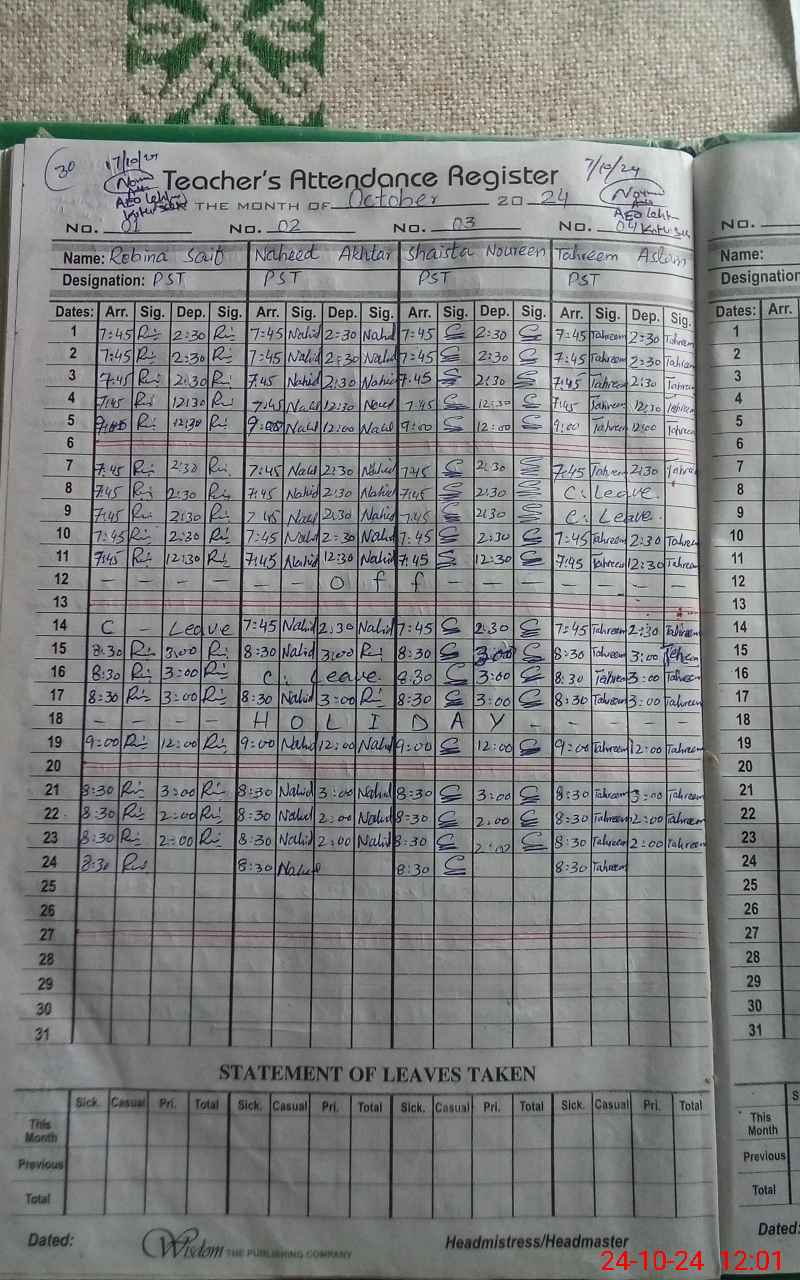 30 17/10/24 7/10/24
Teacher's Attendance Register
THE MONTH OF October 2024
No. 01 No. 02 No. 03 No. 04 No.
Name: Robina Saif Naheed Akhtar Shaista Noureen Tahreem Aslam Name:
Designation: PST PST PST PST Designation
Dates: Arr. Sig. Dep. Sig. Arr. Sig. Dep. Sig. Arr. Sig. Dep. Sig. Arr. Sig. Dep. Sig. Dates: Arr.
1 7:45 2:30 7:45 Nahid 2:30 Nahid 7:45 2:30 7:45 Tahreem 2:30 Tahreem 1
2 7:45 2:30 7:45 Nahid 2:30 Nahid 7:45 2:30 7:45 Tahreem 2:30 Tahreem 2
3 7:45 2:30 7:45 Nahid 2:30 Nahid 7:45 2:30 7:45 Tahreem 2:30 Tahreem 3
4 7:45 12:30 7:45 Nahid 12:30 7:45 12:30 7:45 Tahreem 12:30 Tahreem 4
5 12:30 9:00 Nahid 12:00 Nahid 9:00 12:00 9:00 Tahreem 12:00 Tahreem 5
6 6
7 7:45 2:30 7:45 Nahid 2:30 Nahid 7:45 2:30 7:45 Tahreem 2:30 Tahreem 7
8 7:45 2:30 7:45 Nahid 2:30 Nahid 7:45 2:30 C. Leave. 8
9 7:45 2:30 7:45 Nahid 2:30 Nahid 7:45 2:30 C. Leave. 9
10 7:45 2:30 7:45 Nahid 2:30 Nahid 7:45 2:30 7:45 Tahreem 2:30 Tahreem 10
11 7:45 12:30 7:45 Nahid 12:30 Nahid 7:45 12:30 7:45 Tahreem 12:30 Tahreem 11
12 – – – – – – O f f – – – – – – – 12
13 13
14 C – Leave 7:45 Nahid 2:30 Nahid 7:45 2:30 7:45 Tahreem 2:30 Tahreem 14
15 8:30 3:00 8:30 Nahid 3:00 8:30 3:00 8:30 Tahreem 3:00 Tahreem 15
16 8:30 3:00 C. Leave. 8:30 3:00 8:30 Tahreem 3:00 Tahreem 16
17 8:30 3:00 8:30 Nahid 3:00 8:30 3:00 8:30 Tahreem 3:00 Tahreem 17
18 – – – – H O L I D A Y – – – – – 18
19 9:00 12:00 9:00 Nahid 12:00 Nahid 9:00 12:00 9:00 Tahreem 12:00 Tahreem 19
20 20
21 8:30 3:00 8:30 Nahid 3:00 Nahid 8:30 3:00 8:30 Tahreem 3:00 Tahreem 21
22 8:30 2:00 8:30 Nahid 2:00 Nahid 8:30 2:00 8:30 Tahreem 2:00 Tahreem 22
23 8:30 2:00 8:30 Nahid 2:00 Nahid 8:30 2:00 8:30 Tahreem 2:00 Tahreem 23
24 8:30 8:30 Nahid 8:30 8:30 Tahreem 24
25 25
26 26
27 27
28 28
29 29
30 30
31 31
STATEMENT OF LEAVES TAKEN
Sick. Casual Pri. Total Sick. Casual Pri. Total Sick. Casual Pri. Total Sick. Casual Pri. Total S
This Month This Month
Previous Previous
Total Total
Dated: Wisdom THE PUBLISHING COMPANY Headmistress/Headmaster Dated:
24-10-24 12:01